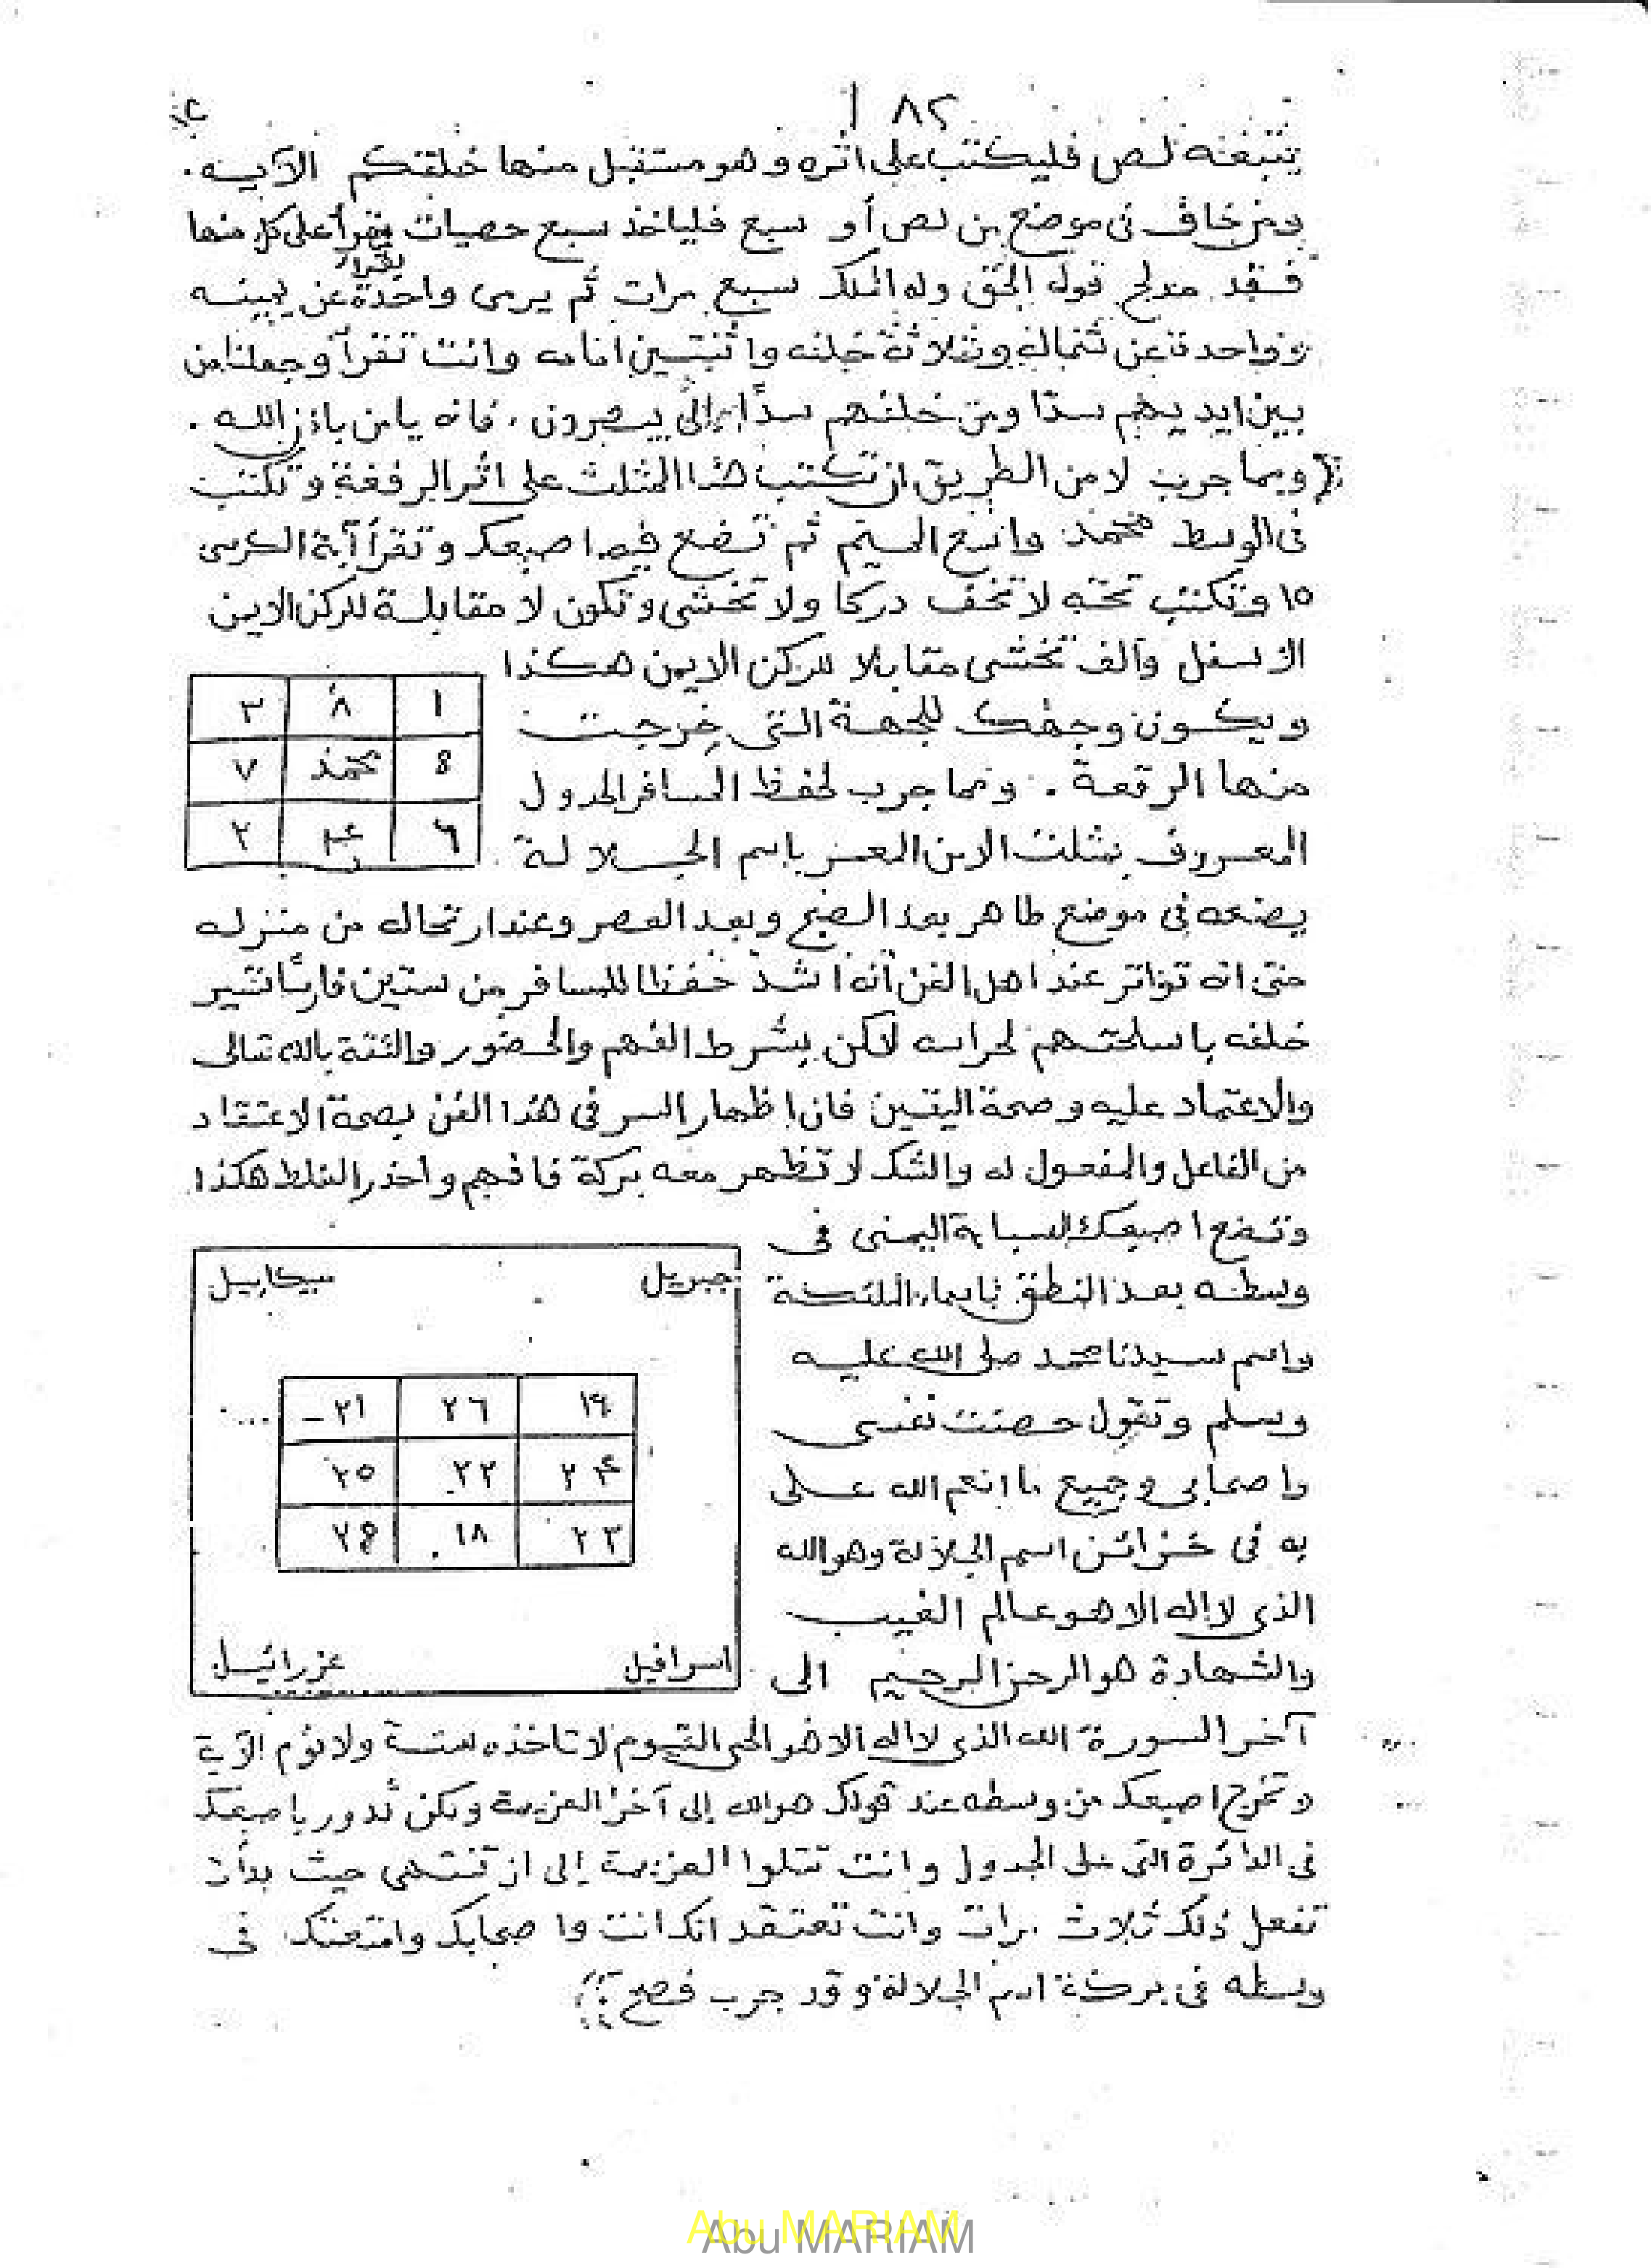 ٨٢
يتبعه لص فليكتب على اثره وهو مستقبل منها خلقتكم الآية .
ومن خاف فى موضع من لص أو سبع فليأخذ سبع حصيات يقرأ على كل منها
يقرأ
قوله الحق وله الملك سبع مرات ثم يرمى واحدة عن يمينه
وواحدة عن شماله وثلاثة خلفه واثنتين امامه وانت تقرأ وجعلنا من
بين ايديهم سدّا ومن خلفهم سدّا إلى يبصرون ، فانه يأمن باذن الله .
ومما جرب لامن الطريق ان تكتب هذا المثلث على اثر الرفقة وتكتب
فى الوسط محمد واتبع الميم ثم تضع فيه اصبعك وتقرأ آية الكرسى
١٥ وتكتب تحته لا تخف دركا ولا تخشى وتكون لا مقابلة للركن الايمن
الاسفل وألف تخشى مقابلا للركن الايمن هكذا
١ ٨ ٣
محمد ٧
٦ ٢
ويكون وجهك للجهة التى خرجت
منها الرقعة . ومما جرب لحفظ المسافر الجدول
المعروف بمثلث الامن المعمر باسم الجلالة
يصنعه فى موضع طاهر بعد الصبح وبعد العصر وعند ارتحاله من منزله
حتى انه تواتر عند اهل الفن أنه اشد حفظا للمسافر من ستين فارسًا تسير
خلفه باسلحتهم لحراسه لاكن بشرط الفهم والحضور والثقة بالله تعالى
والاعتماد عليه وصحة اليقين فان اظهار السر فى هذا الفن بصحة الاعتقاد
من الفاعل والمفعول له والشك لا تظهر معه بركة فافهم واحذر الغلط هكذا
وتضع اصبعك السبابة اليمنى فى
وسطه بعد النطق باسماء الملئكة
واسم سيدنا محمد صلى الله عليه
وسلم وتقول حصنت نفسى
واصحابى وجميع ما انعم الله على
به فى خزائن اسم الجلالة وهو الله
الذى لا اله الا هو عالم الغيب
والشهادة هو الرحمن الرحيم الى
جبريل ميكاييل
١٩ ٢٦ ٢١
٢٤ ٢٢ ٢٥
٢٣ ١٨
اسرافيل عزرائيل
آخر السورة الله الذى لا اله الا هو الحى القيوم لا تاخذه سنة ولا نوم الآية
وتخرج اصبعك من وسطه عند قولك هو الله إلى آخر العزيمة ولكن تدور باصبعك
فى الدائرة التى على الجدول وانت تتلوا العزيمة إلى ان تنتهى حيث بدأت
تفعل ذلك ثلاث مرات وانت تعتقد انك انت واصحابك وامتعتك فى
وسطه فى بركة اسم الجلالة وقد جرب فصح
Abu MARIAM
Abu MARIAM